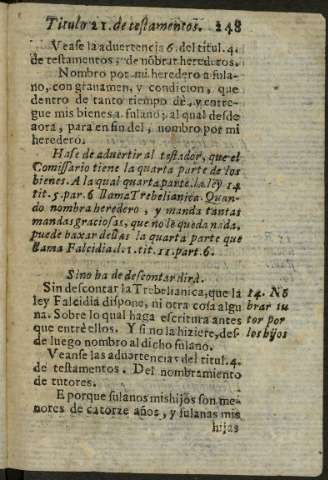 Titulo 21. de testamentos. 248
Vease la aduertencia 6. del titul. 4.
de testamentos, de nõbrar herederos.
Nombro por mi heredero a fula-
no, con grauamen, y condicion, que
dentro de tanto tiempo dè, y entre-
gue mis bienes a fulano; al qual desde
aora, para en fin del, nombro por mi
heredero.
Hase de aduertir al testador, que el
Comissario tiene la quarta parte de los
bienes. A la qual quarta parte, la ley 14
tit. 5. par. 6 llama Trebelianica. Quan-
do nombra heredero, y manda tantas
mandas graciosas, que no le queda nada,
puede baxar dellas la quarta parte que
llama Falcidia. l. 1. tit. 11. part. 6.
Sino ha de descontar dirà.
Sin descontar la Trebelianica, que la
ley Falcidia dispone, ni otra cosa algu
na. Sobre lo qual haga escritura antes
que entrè ellos. Y si no la hiziere, des-
de luego nombro al dicho fulano.
14. Nõ
brar tu
tor por
los hijos
Veanse las aduertencias del titul. 4.
de testamentos. Del nombramiento
de tutores.
E porque fulanos mis hijos son me-
nores de catorze años, y fulanas mis
hijas